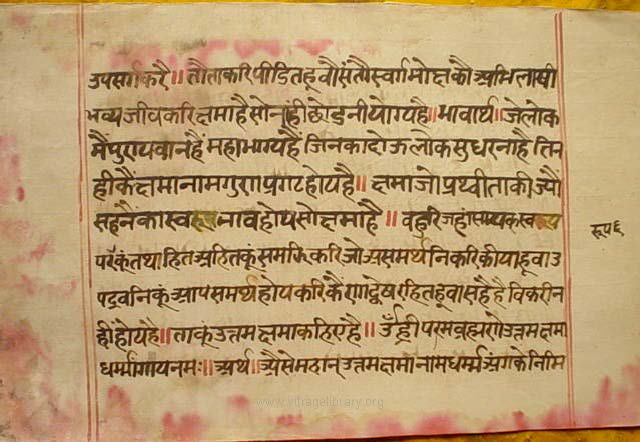 उपसर्गकरै॥ तौताकरिपीडितहूवौसंतौस्वर्गमोक्षकौअभिलाषी
भव्यजीवकरिक्षमाहैसोनांहीछोडनीयोग्यहै॥ भावार्थ॥ जेलोक
मैंपुरायवानहैंमहाभाग्यहैंजिनकादोऊलोकसुधरनाहैतिन
हीकैंक्षमानामगुराप्रगटहोयहै॥ क्षमाजोप्रथ्वीताकीज्यौं
सहनैंकास्वरूपनावहोयसोक्षमाहै॥ वहुरिजहां
परकूंतथाहितअहितकूंसमझिकरिजोअसमर्थनिकरिकीयाहूवाउ
पद्रवनिकूंआपसमर्थहोयकरिकैंरागद्वेषरहितहूवासहैहैविकारीन
हीहोयहै॥ ताकूंउत्तमक्षमाकहिएहै॥ उँह्रीपरमव्रह्मणेउत्तमक्षमा
धर्म्मांगायनमः॥ अर्थ॥ अैसेमहान्उत्तमक्षमानामधर्म्मअंगकेनिमि
रूप६
www.vitragelibrary.org